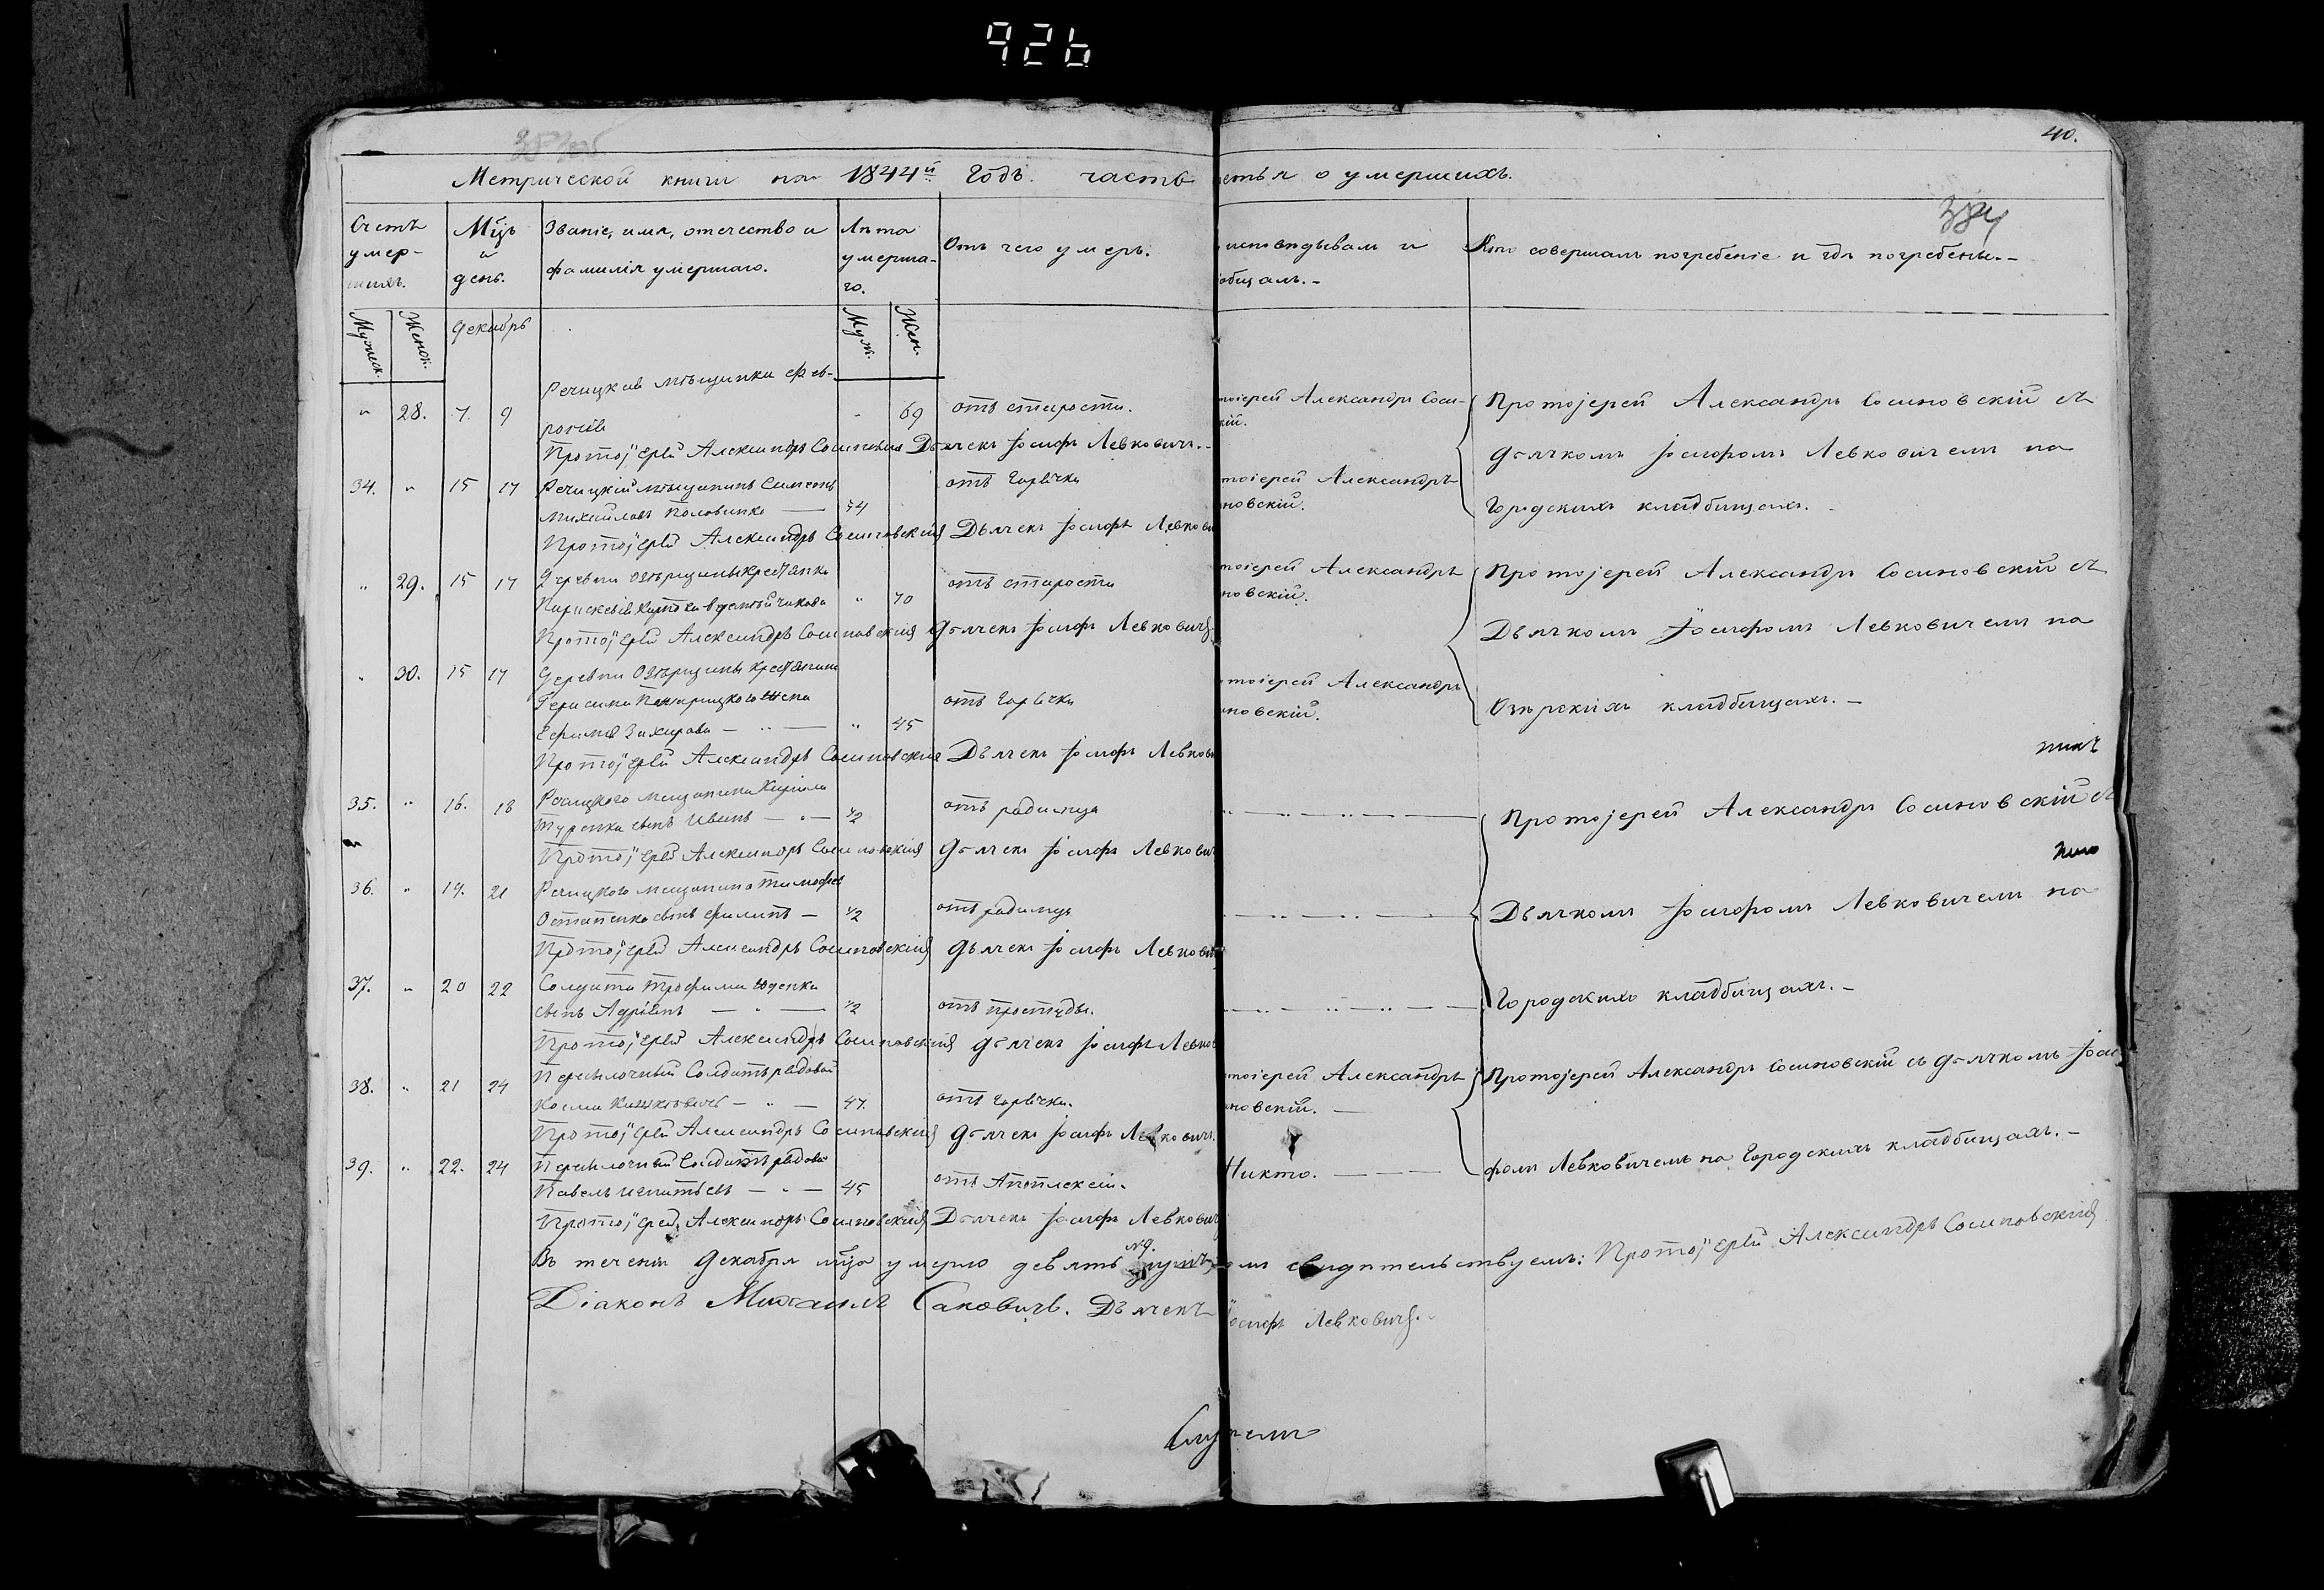 926
40.
Метрической книги на 1844й Годъ. часть етья о умершихъ.
384
Счетъ умер-шихъ.
Мцъ и день.
Званіе, имя, отечество и фамилія умершаго.
Лѣта умерша-го.
Отъ чего умеръ.
исповѣдывалъ и
общалъ.-
Кто совершалъ погребеніе и гдѣ погребены.-
Мужеск.
Женск.
Декабрь
Муж.
Жен.
Речицкая мѣщанка Фев-
" 28. 7. 9 - 69 отъ старости.
ронія
тоіерей Александръ Соси-
кій.
Протоіерей Александръ Сосиновскій Дьячекъ Іосифъ Левковичъ.-
Протоіерей Александръ Сосиновскій съ
Дьячкомъ Іосифомъ Левковичемъ на
Городскихъ кладбищахъ.
34. " 15 17 Речицкій мѣщанинъ Симеонъ отъ Горячки
Михайловъ Половинка — 54
тоіерей Александръ
новскій.
Протоіерей Александръ Сосиновскій Дьячекъ Іосифъ Левкови
" 29. 15 17 Деревни Озерщины крестьянка отъ старости
Параскевія " 70
тоіерей Александръ
новскій.
Протоіерей Александръ Сосиновскій Дьячекъ Іосифъ Левковичъ.
Протоіерей Александръ Сосиновскій съ
Дьячкомъ Іосифомъ Левковичемъ на
Озерскихъ кладбищахъ.-
" 30. 15 17 Деревни Озерщины крестьянина
Герасима жена отъ Горячки
Захарова — " — " 45
тоіерей Александръ
новскій.
Протоіерей Александръ Сосиновскій Дьячекъ Іосифъ Левкови
35. " 16. 18 Речицкаго мещанина Кирила отъ родимца
сынъ Иванъ — " — 1/2
Протоіерей Александръ Сосиновскій Дьячекъ Іосифъ Левкович
Протоіерей Александръ Сосиновскій съ
Дьячкомъ Іосифомъ Левковичемъ на
Городскихъ кладбищахъ.-
36. " 19. 21 Речицкаго мещанина Тимофея
Остапенка сынъ Филипъ — 1/2 отъ родимца
Протоіерей Александръ Сосиновскій Дьячекъ Іосифъ Левкович
37. " 20 22 Солдата Трофима
сынъ Адріанъ — " — 1/2 отъ простуды.
Протоіерей Александръ Сосиновскій Дьячекъ Іосифъ Левков
38. " 21 24 Пересылочный Солдатъ рядовой
Косма — " — 47. отъ Горячки.
тоіерей Александръ
новскій. —
Протоіерей Александръ Сосиновскій Дьячекъ Іосифъ Левковичъ.
Протоіерей Александръ Сосиновскій съ Дьячкомъ Іоси
фомъ Левковичемъ на Городскихъ кладбищахъ.-
39. " 22. 24 Пересылочный Солдатъ рядовой
Павелъ Игнатьевъ — " — 45 отъ Апоплексіи.
Никто. —
Протоіерей Александръ Сосиновскій Дьячекъ Іосифъ Левкович
Въ теченіи Декабря мца умерло девять №9. омъ свидѣтельствуемъ: Протоіерей Александръ Сосиновскій
Діаконъ Михаилъ Саковичъ. Дьячекъ Іосифъ Левковичъ.